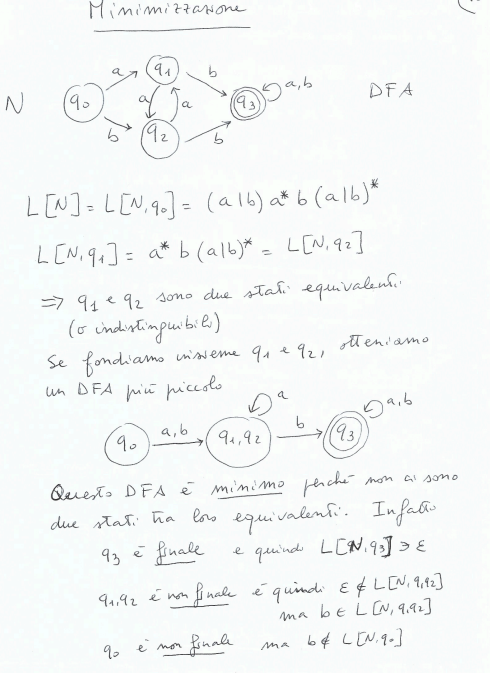 Minimizzazione
N q0 a q1 b a a b q2 b q3 a,b DFA
L[N] = L[N,q0] = (a|b) a* b (a|b)*
L[N,q1] = a* b (a|b)* = L[N,q2]
⇒ q1 e q2 sono due stati equivalenti.
(o indistinguibili)
Se fondiamo insieme q1 e q2, otteniamo
un DFA più piccolo
q0 a,b q1,q2 a b q3 a,b
Questo DFA è minimo perché non ci sono
due stati tra loro equivalenti. Infatti
q3 è finale e quindi L[N,q3] ∋ ε
q1,q2 è non finale e quindi ε ∉ L[N,q1q2]
ma b ∈ L[N,q1q2]
q0 è non finale ma b ∉ L[N,q0]